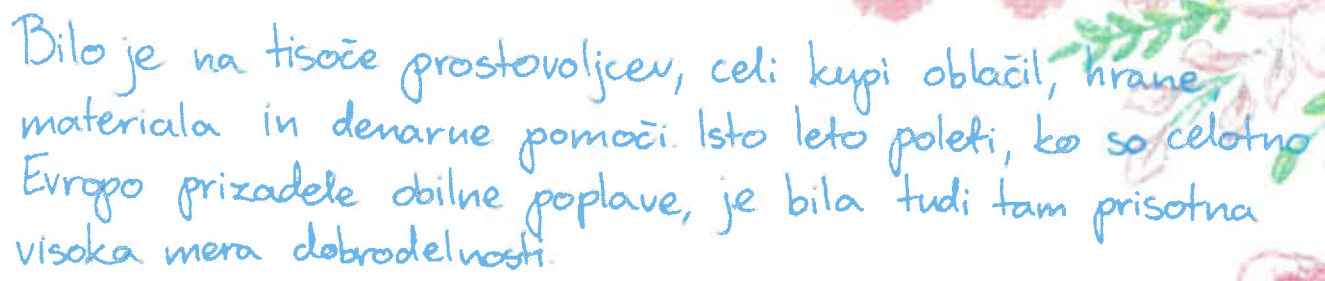 Bilo je na tisoče prostovoljcev, celi kupi oblačil, hrane,
materiala in denarne pomoči. Isto leto poleti, ko so celotno
Evropo prizadele obilne poplave, je bila tudi tam prisotna
visoka mera dobrodelnosti.